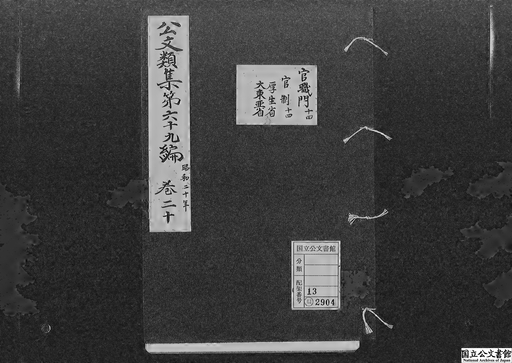 公文類集第六十九編 昭和二十年 巻二十
官職門十四
官制十四
厚生省
大東亜省
国立公文書館
分類
配架番号
13
2904
国立公文書館
National Archives of Japan